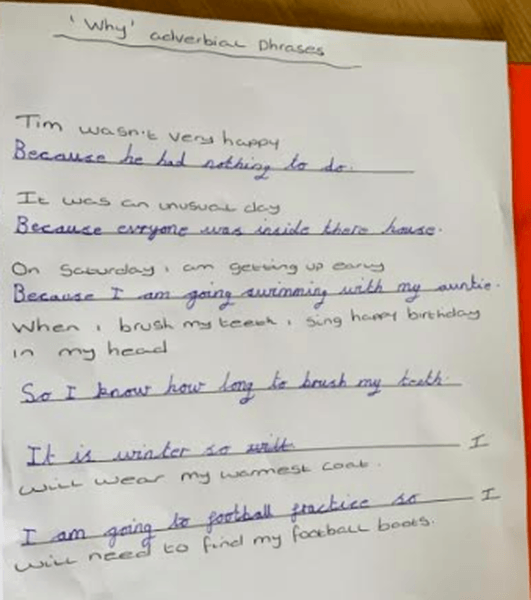 'Why' adverbial Phrases
Tim wasn't very happy
Because he had nothing to do.
It was an unusual day
Because everyone was inside there house.
On Saturday i am getting up early
Because I am going swimming with my auntie.
When i brush my teeth i sing happy birthday
in my head
So I know how long to brush my teeth.
It is winter so will I
will wear my warmest coat.
I am going to football practice so I
will need to find my football boots.